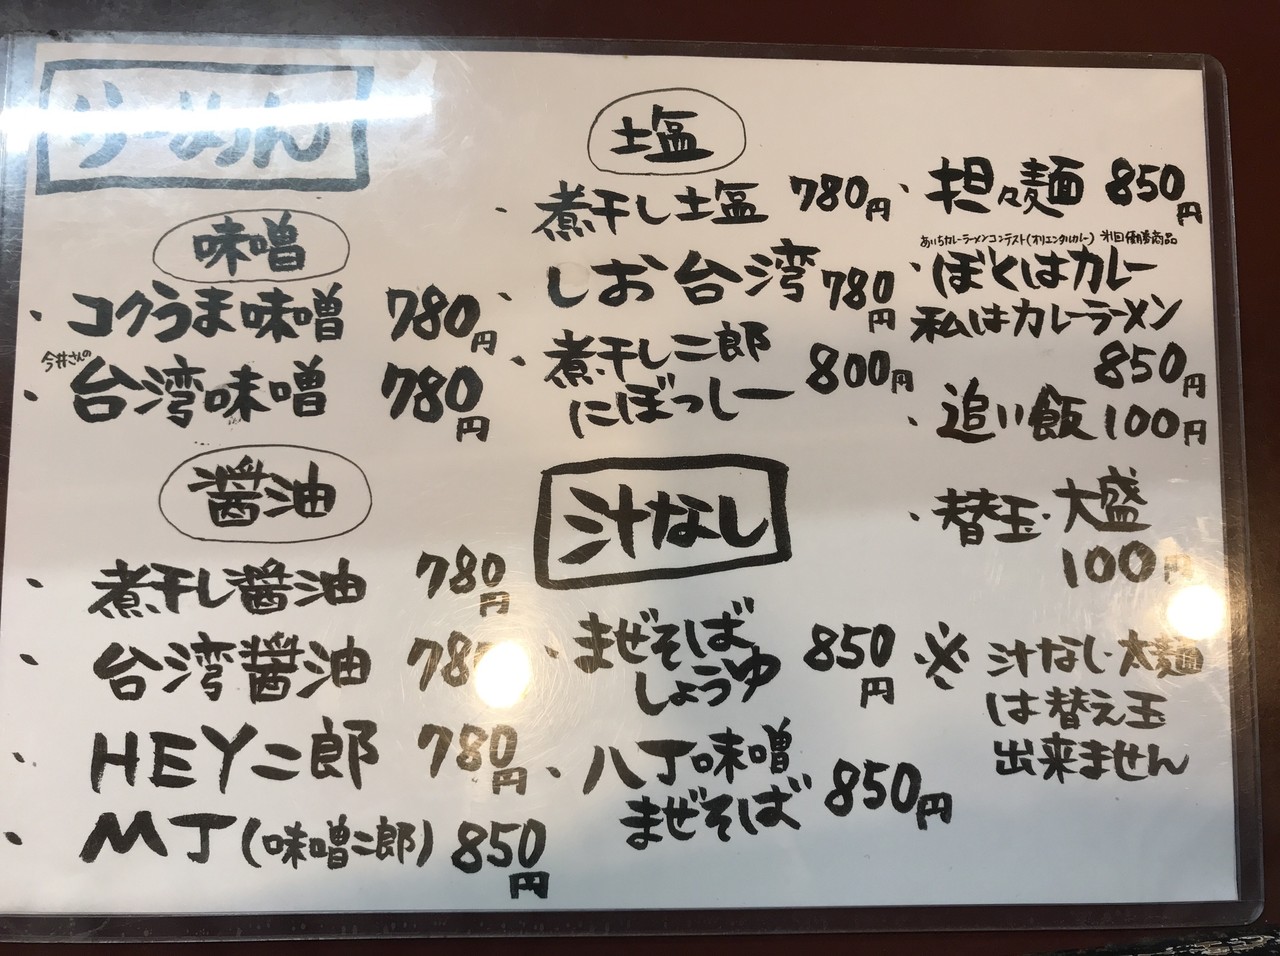 らーめん
味噌
・コクうま味噌 780円
今井さんの
・台湾味噌 780円
醤油
・煮干し醤油 780円
・台湾醤油 78
・HEY二郎 780円
・MJ(味噌二郎) 850円
塩
・煮干し塩 780円
・しお台湾 780円
・煮干し二郎 800円
にぼっしー
汁なし
・まぜそば 850円
しょうゆ
・八丁味噌
まぜそば 850円
・担々麺 850円
あいちカレーラーメンコンテスト(オリエンタルカレー) 優勝商品
・ぼくはカレー
私はカレーラーメン
850円
・追い飯 100円
・替玉・大盛
100円
※汁なし・太麺
は替え玉
出来ません